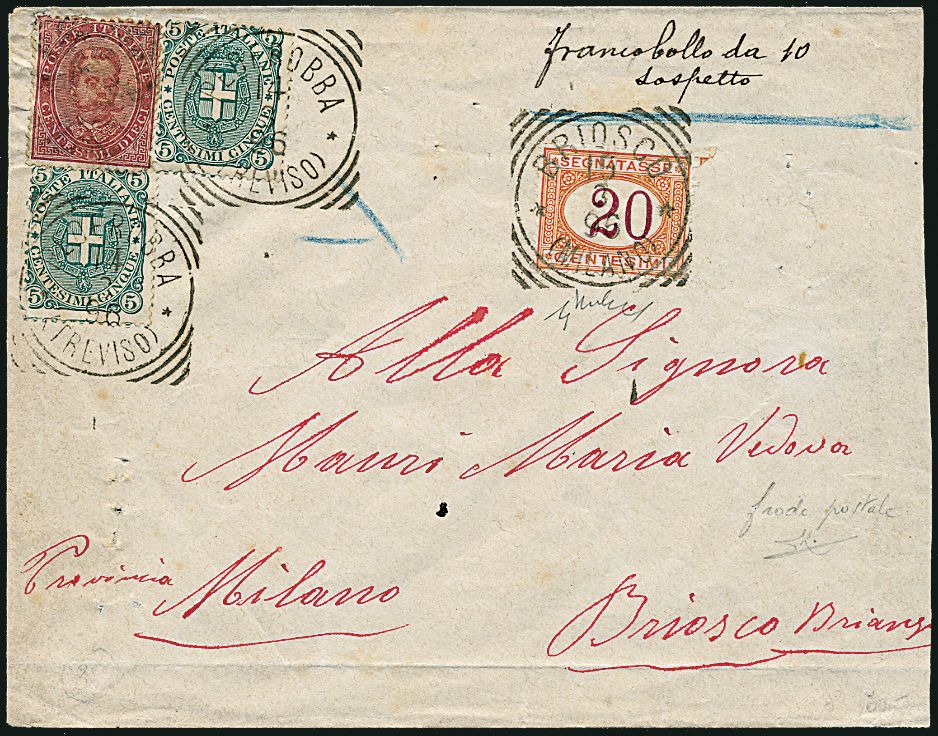 POSTE ITALIANE
CENTESIMI DIECI
5 POSTE ITALIANE 5
5 CENTESIMI CINQUE 5
OBBA
(TREVISO)
Francobollo da 10
sospetto
BRIOSCO
12
3
96
(MILANO)
SEGNATASSE
20
CENTESIMI
5 POSTE ITALIANE 5
5 CENTESIMI CINQUE 5
BBA
96
(TREVISO)
Alla Signora
Mauri Maria Vedova
frode postale
Provincia Milano
Briosco Brianz